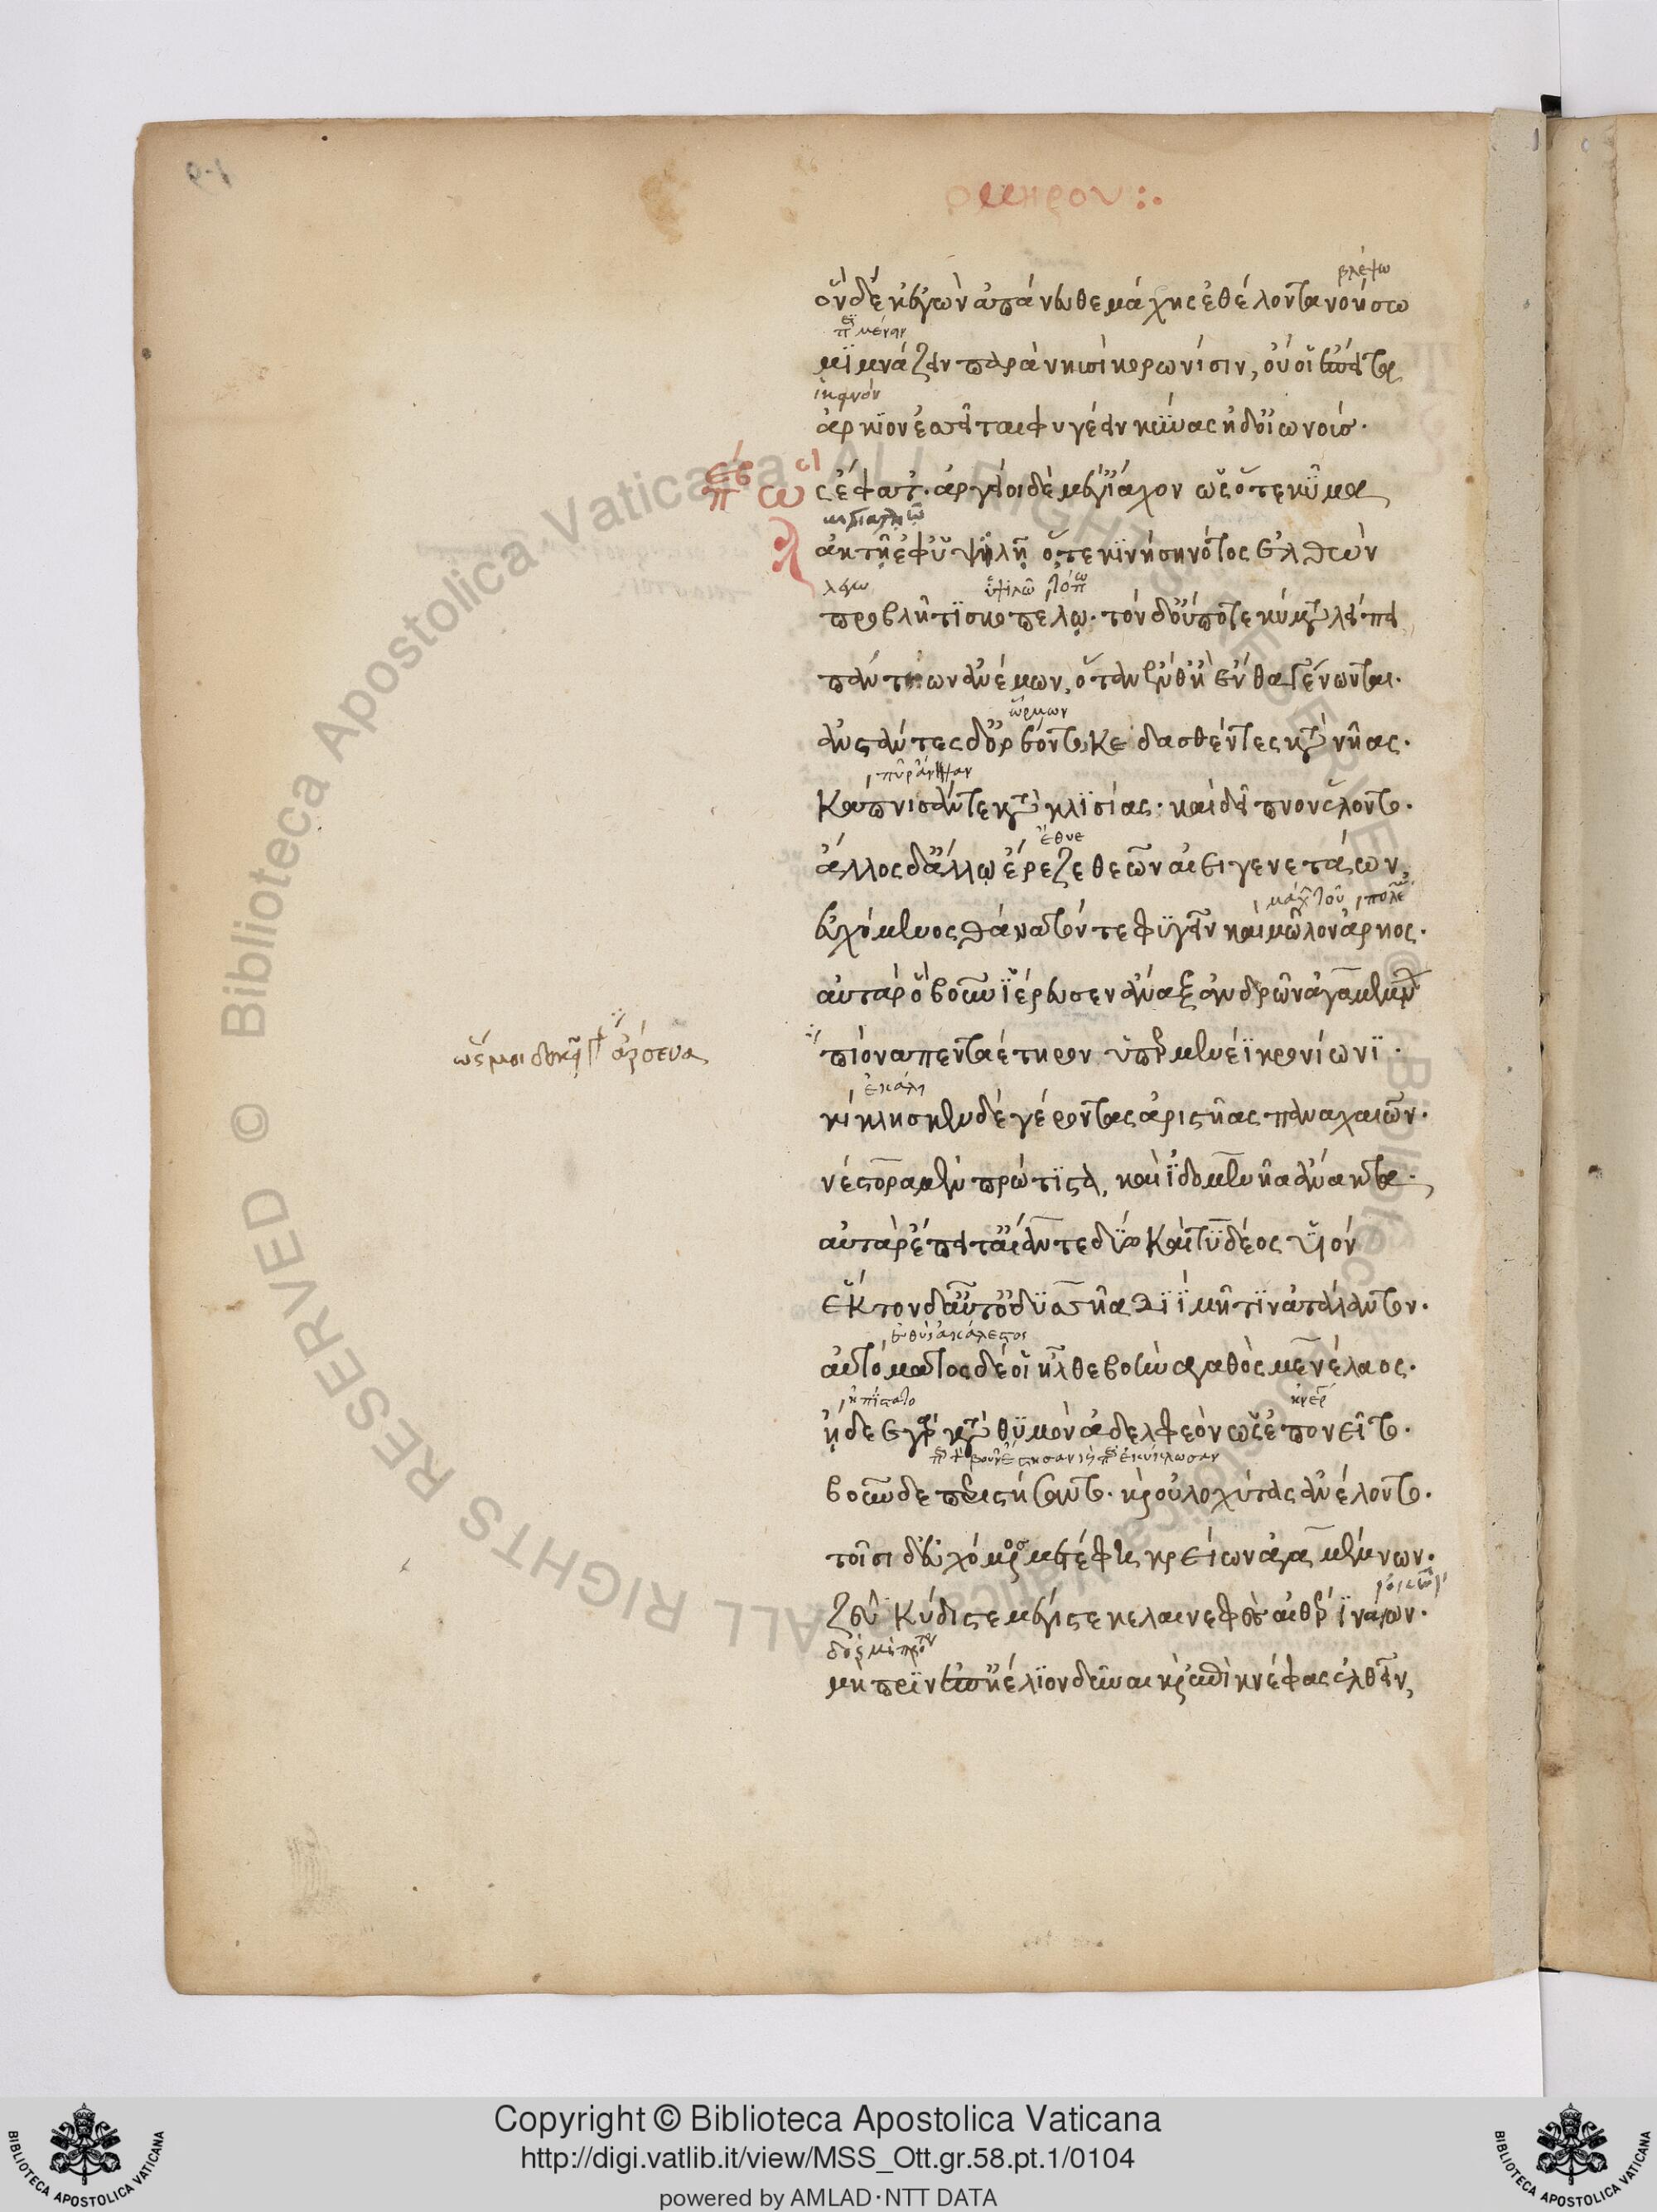 ομηρου :·
βλέψω
ὃν δέ κ' ἐγὼν ἀπάνευθε μάχης ἐθέλοντα νοήσω
μένειν
μϊμνάζειν παρὰ νηυσὶ κορωνίσιν, οὔ οἱ ἔπειτα
ἱκανόν
ἄρκϊον ἐσσεῖται φυγέειν κύνας ἠδ' οἰωνούς·
ὣς ἔφατ'· ἀργεῖοι δὲ μέγ' ἴαχον ὡς ὅτε κῦμα
ἀκτῇ ἐφ' ὑψηλῇ ὅτε κϊνήσῃ νότος ἐλθὼν
ὑψιλῶ
προβλῆτϊ σκοπέλῳ· τὸν δ' οὔποτε κύματα λείπει
παντοίων ἀνέμων, ὅταν ἔνθ' ἢ ἔνθα γένωνται·
ὥρμων
ἀνστάντες δ' ὀρέοντο κεδασθέντες κατὰ νῆας·
κάπνισάν τε κατὰ κλϊσίας· καὶ δεῖπνον ἕλοντο·
ἔθυε
ἄλλος δ' ἄλλῳ ἔρεζε θεῶν αἰειγενετάων,
εὐχόμενος θάνατόν τε φϋγεῖν καὶ μῶλον ἄρηος·
αὐτὰρ ὃ βοῦν ϊέρευσεν ἄναξ ἀνδρῶν ἀγαμέμνων
ὥς μοι δοκεῖ ἄρσενα
πίονα πενταέτηρον ὑπερμενέϊ κρονίωνϊ·
ἐκάλει
κίκλησκεν δὲ γέροντας ἀριστῆας παναχαιῶν·
νέστορα μὲν πρώτϊστα, καὶ ϊδομενῆα ἄνακτα·
αὐτὰρ ἔπειτ' αἴαντε δύο καὶ τϋδέος υἱόν
ἕκτον δ' αὖτ' ὀδϋσῆα διϊ μῆτϊν ἀτάλαντον·
αὐτόματος δέ οἱ ἦλθε βοὴν ἀγαθὸς μενέλαος·
ᾔδεε γὰρ κατὰ θϋμὸν ἀδελφεὸν ὡς ἐπονεῖτο·
βοῦν δὲ περιστήσαντο· καὶ οὐλοχύτας ἀνέλοντο·
τοῖσι δ' εὐχόμενος μετέφη κρείων ἀγαμέμνων·
ζεῦ κύδιστε μέγιστε κελαινεφὲς αἰθέρϊ ναίων·
μὴ πρϊν ἐπ' ἠέλϊον δῦναι καὶ ἐπὶ κνέφας ἐλθεῖν,
Copyright © Biblioteca Apostolica Vaticana
http://digi.vatlib.it/view/MSS_Ott.gr.58.pt.1/0104
powered by AMLAD·NTT DATA